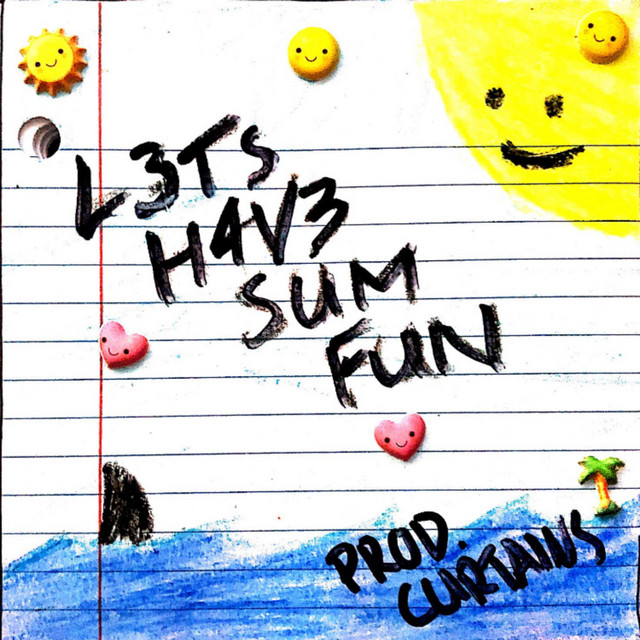 L3TS
H4V3
SUM
FUN
PROD.
CURTAINS